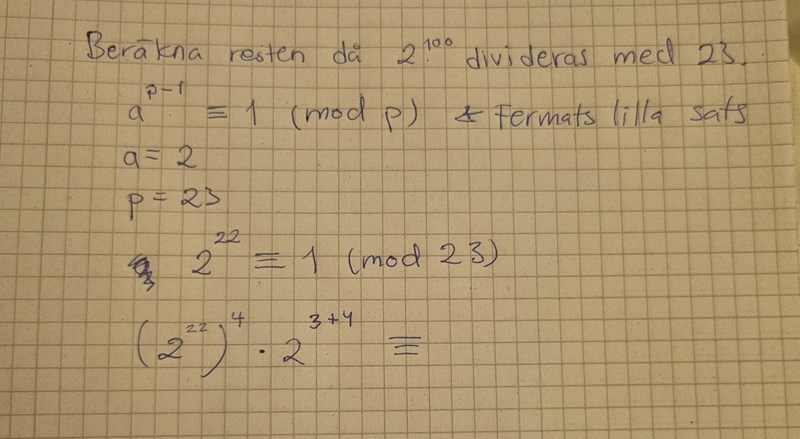 Beräkna resten då 2^100 divideras med 23.
a^(p-1) ≡ 1 (mod p) ← Fermats lilla sats
a = 2
p = 23
2^22 ≡ 1 (mod 23)
(2^22)^4 · 2^(3+4) ≡